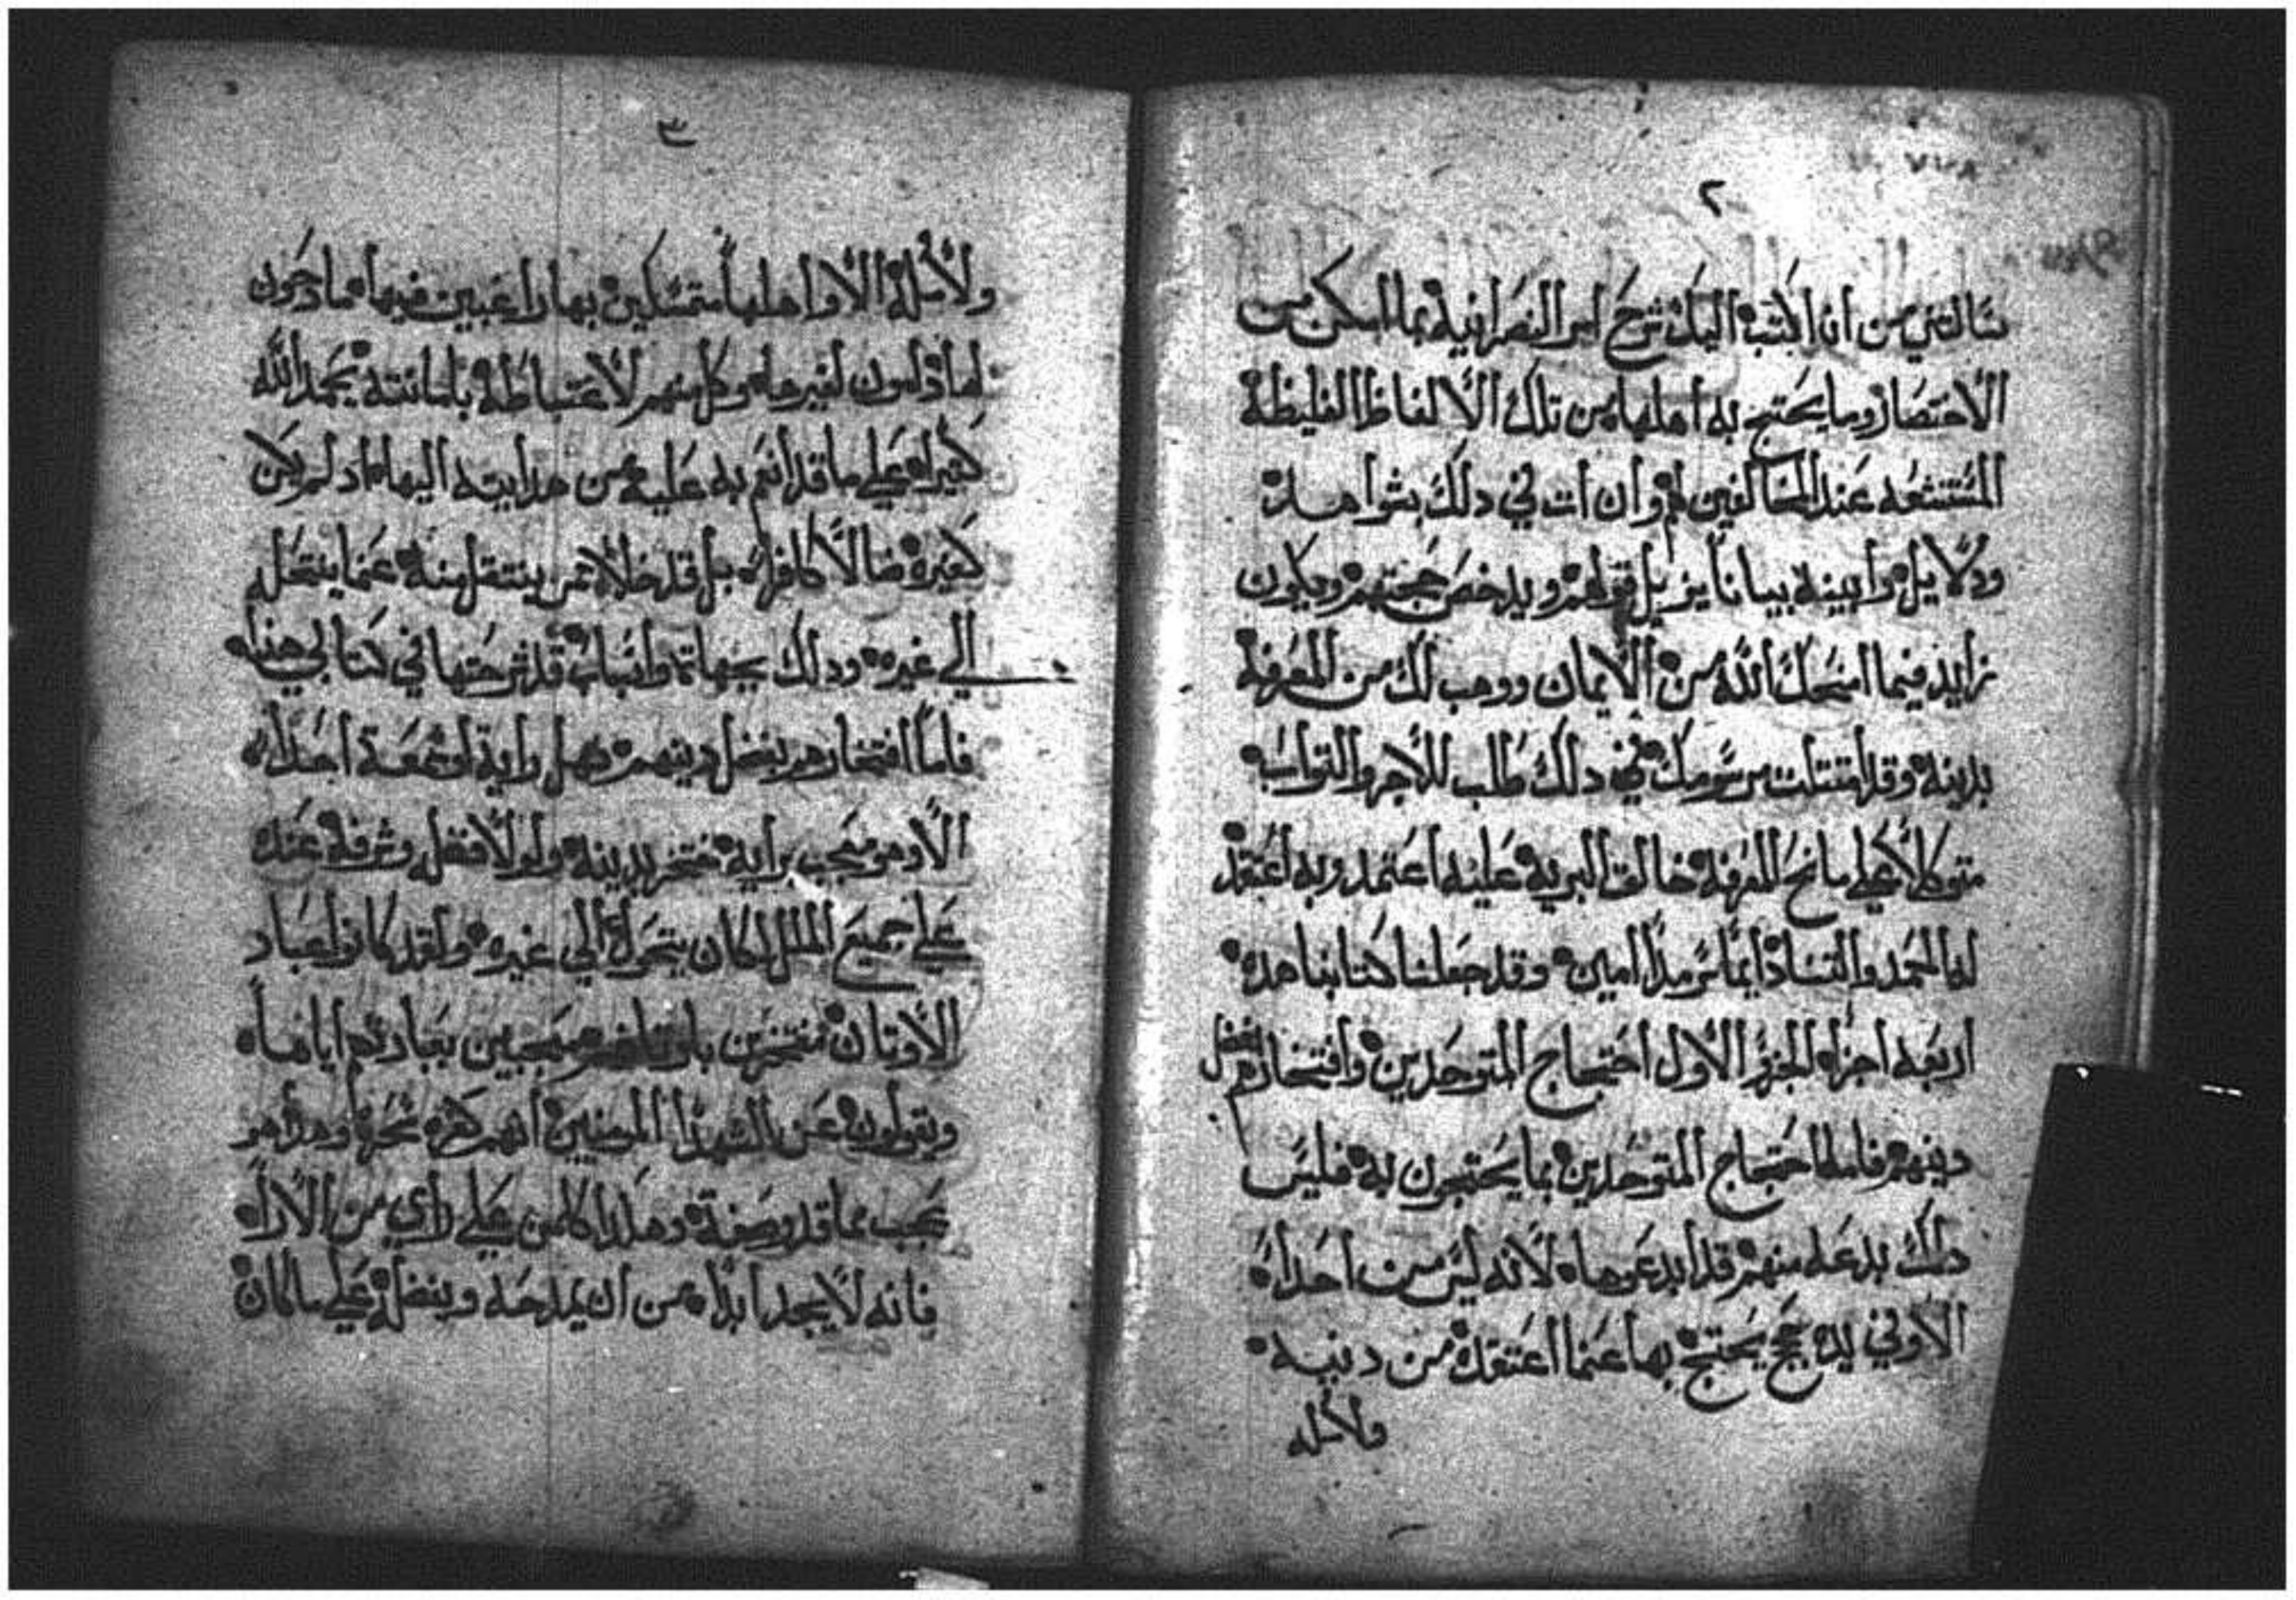 ٢
سالتني من ان اكتب اليك شرح امر النصرانية بما امكن من
الاختصار وما يحتج به اهلها من تلك الالفاظ الغليظة
المستشعه عند المخالفين لهم وان ات في دلك بشواهد
ودلايل وابينه بيانا يزيل قولهم ويدحض حجتهم ويكون
زايد فيما امنحك الله من الايمان ووهب لك من المعرفة
بدينه وقد امتتلت مرسومك في دلك طالب للاجر والتواب
متوكلا علي مانح المعرفة خالق البرية عليه اعتمد وبه اعتقد
له الحمد والتسبا دايما سرمدا امين وقد جعلنا كتابنا هده
اربعه اجزاه الجزو الاول احتجاج المتوحدين وافتخارهم بفضل
دينهم فاما احتجاج المتوحدين بما يحتجون به فليس
دلك بدعه منهم قد ابدعوها لانه ليس من احدا
الا وفي يده حجج يحتج بها عنما اعتقده من دينه
ولا مله
٣
ولا مله الا واهلها متمسكين بها راغبين فيها مادحون
لها دامون لغيرها وكل منهم لاغتباطه بامانته يحمد الله
كتيرا علي ما قد انعم به عليه من هدايته اليها اد لم يكن
كغيره ضالا كافرا بل قد خلا من ينتقل منه عنما ينتحل
الي غيره ودلك بجهات واسباب قد شرحتها في كتابي هدا
فاما افتخارهم بفضل دينهم فهل رايت او سمعت احدا
الا وهو معجب برايه مفتخر بدينه ولولا فضله وشرفه عنده
علي جميع الملل لكان يتحول الي غيره ولقد كانوا عباد
الاوتان مفتخرين باوتانهم معجبين بعبادتهم اياها
ويقولون عن الشهدا المومنين انهم كفره سحره وهدا هو
عجب مما قد وصفته وهكدا كلمن علي راي من الارا
فانه لا يجد ابدا من ان يمدحه ويفضله علي ما كان